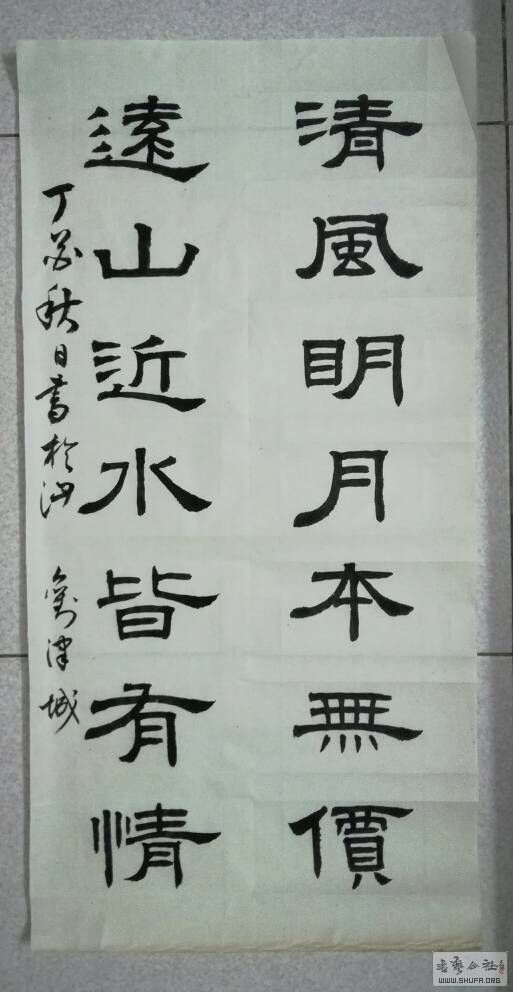 清風明月本無價
遠山近水皆有情
丁酉秋日書於沙 劉津城
書藝公社
WWW.SHUFA.ORG